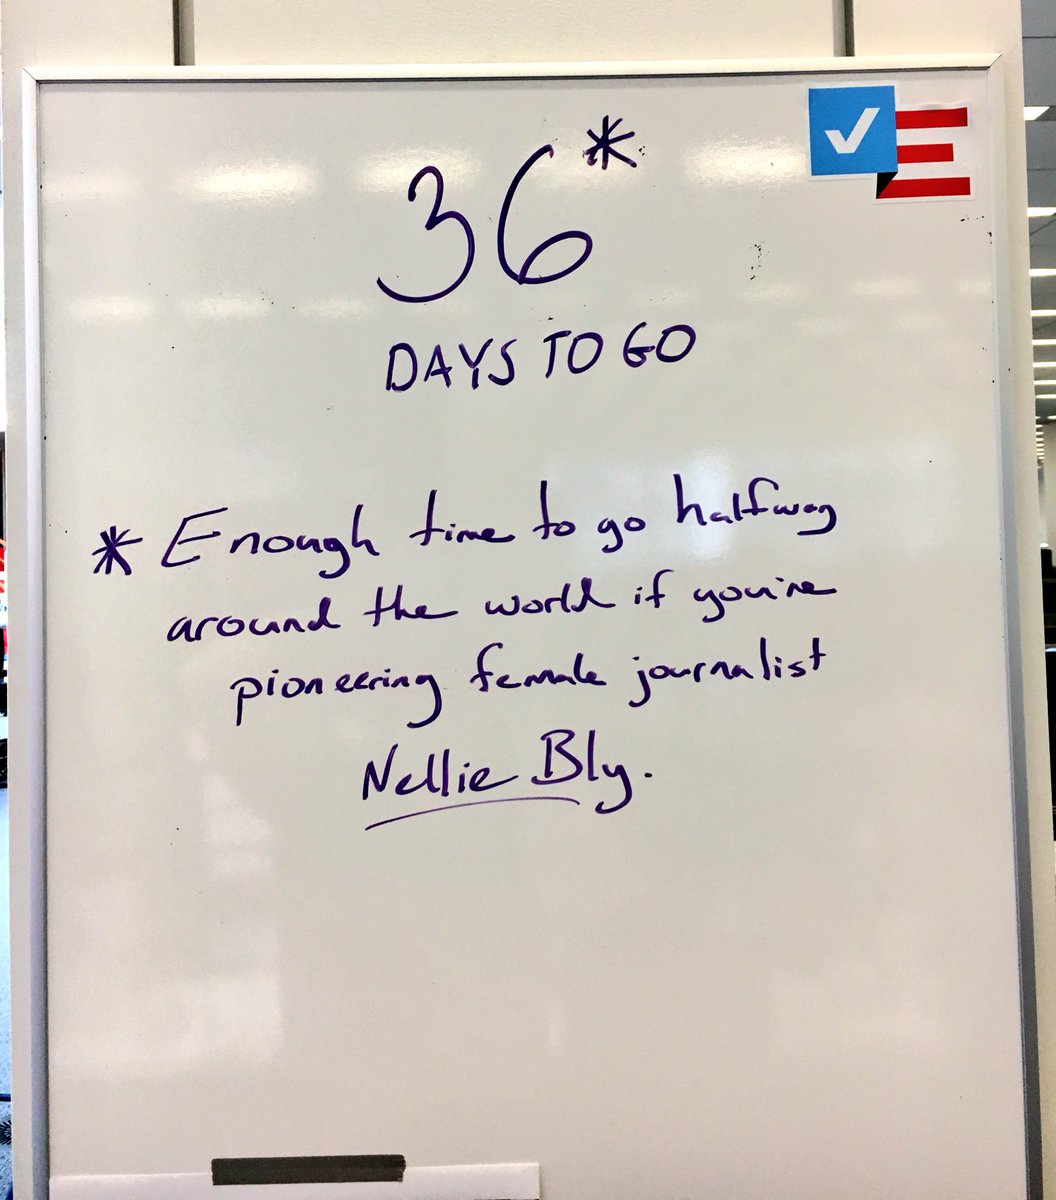 36*
DAYS TO GO
* Enough time to go halfway
around the world if you're
pioneering female journalist
Nellie Bly.